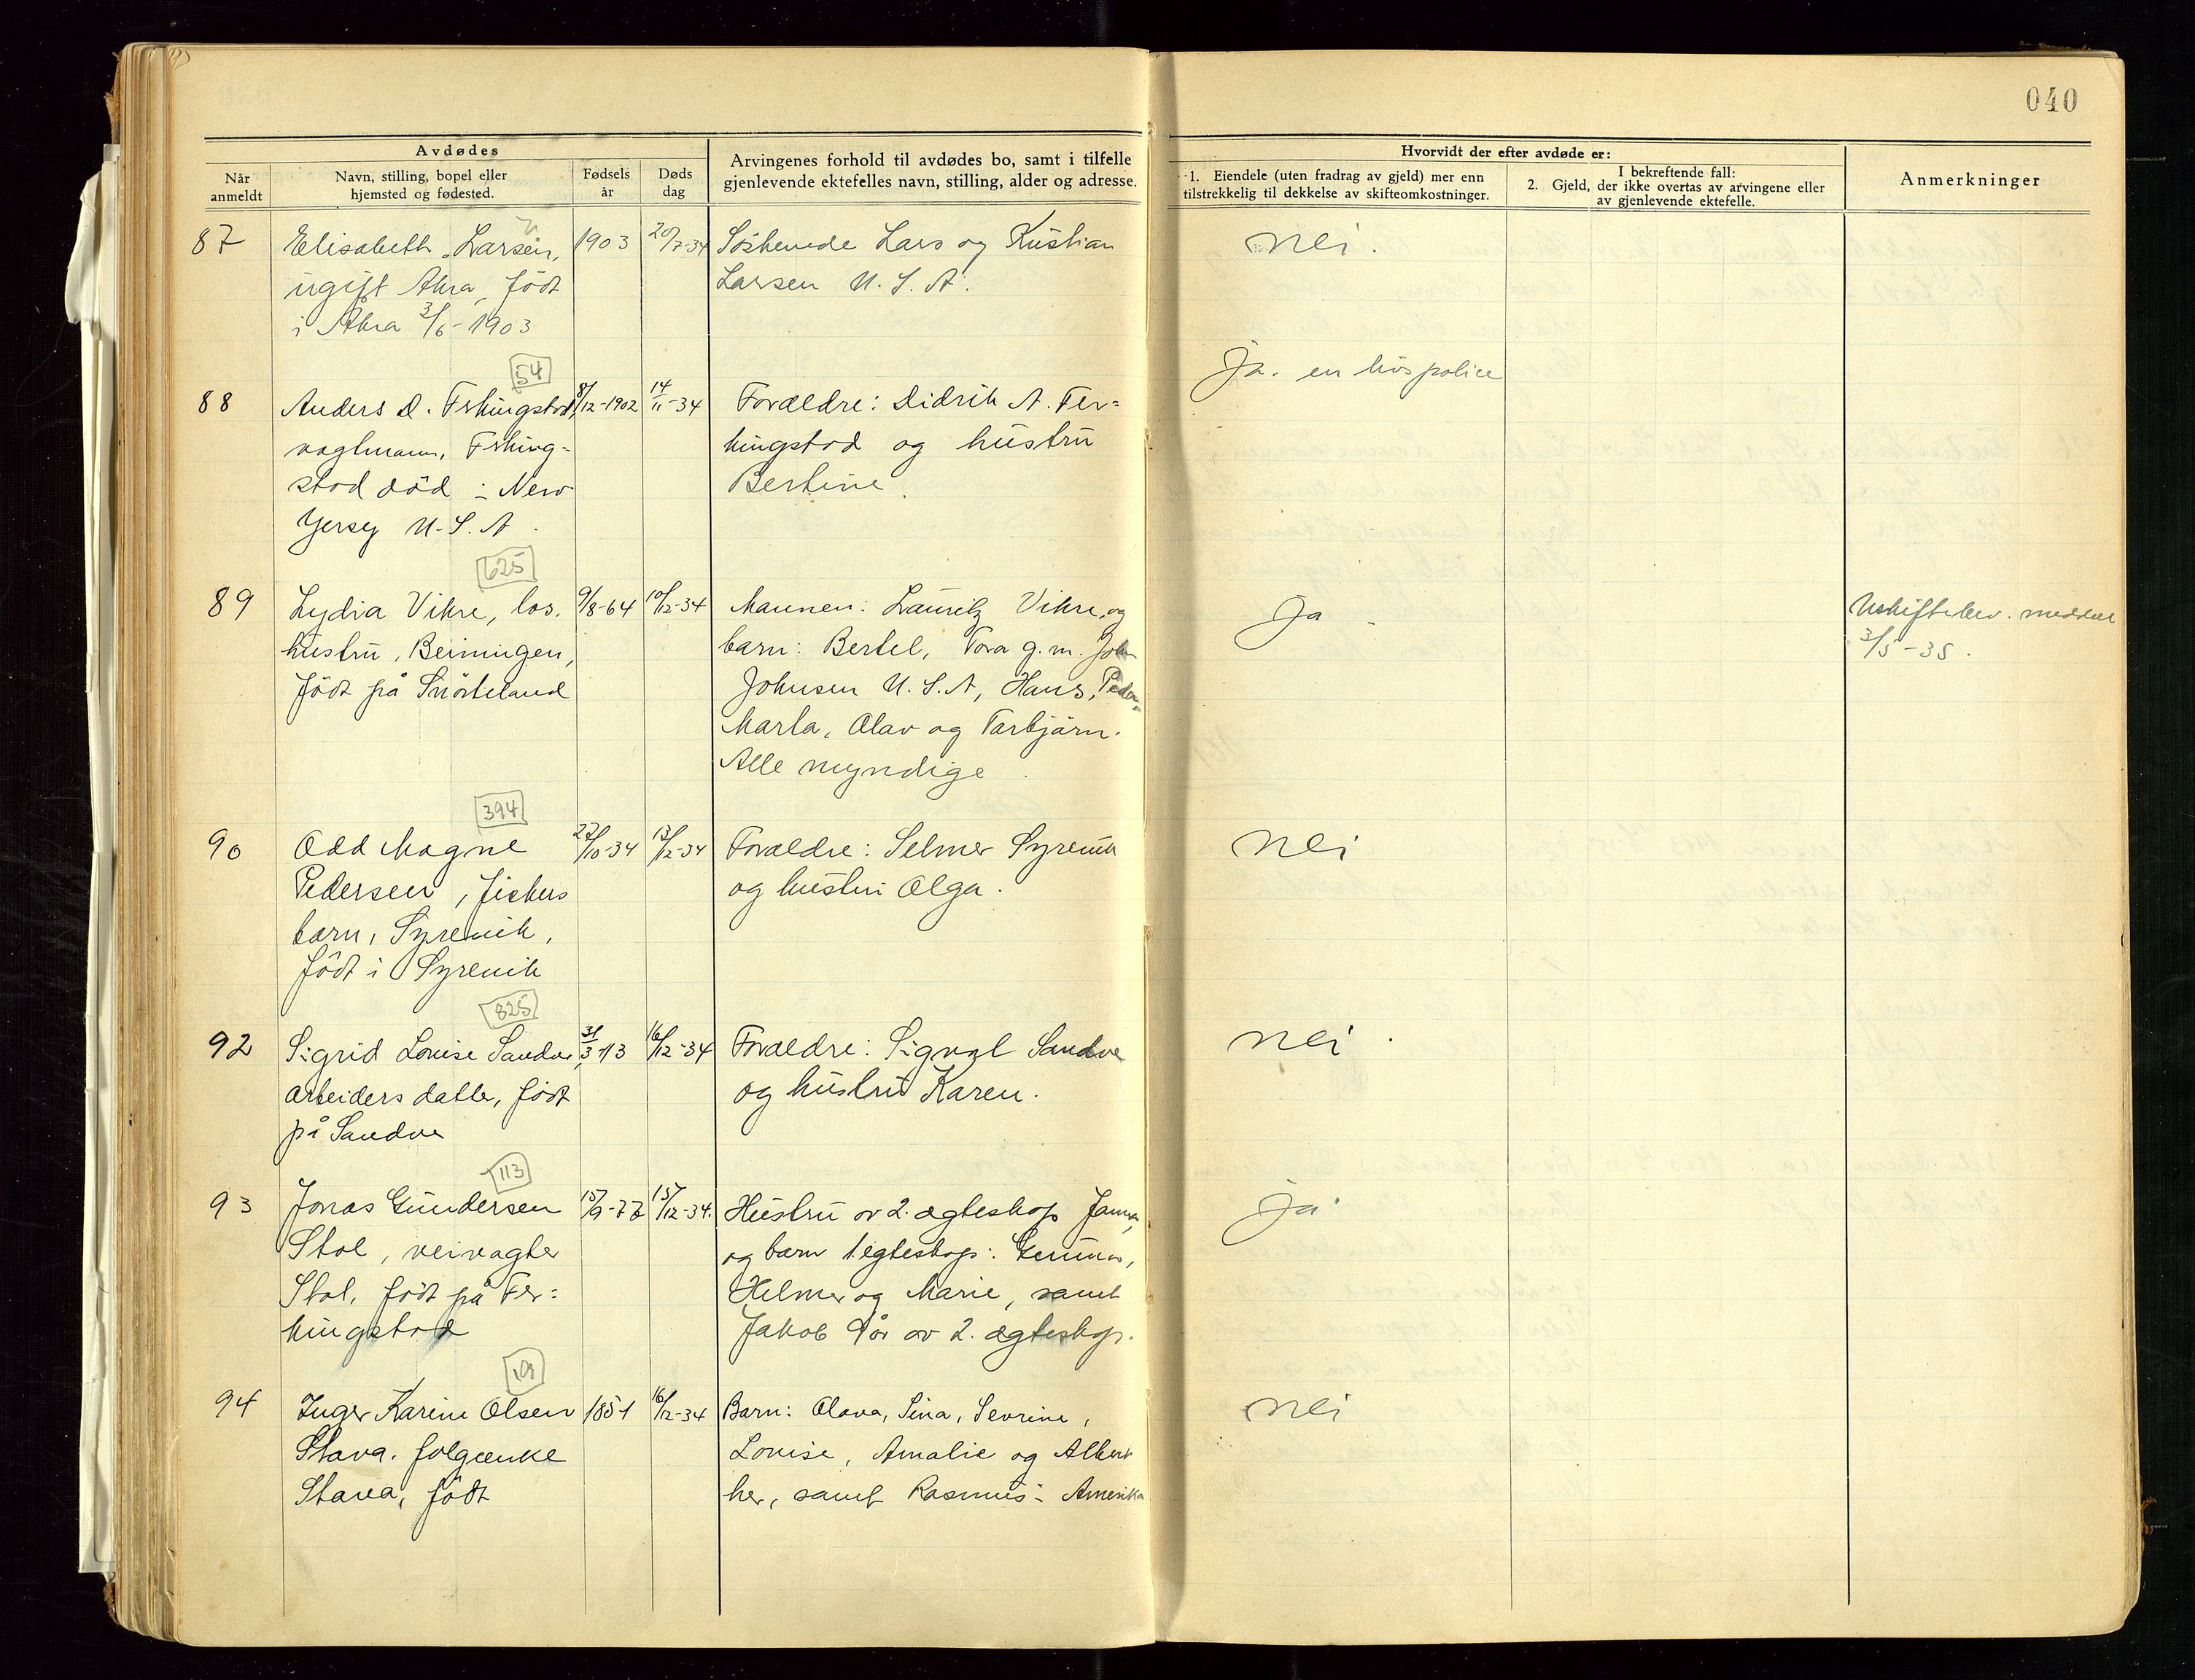 040
Avdødes
Når anmeldt
Navn, stilling, bopel eller hjemsted og fødested.
Fødsels år
Døds dag
Arvingenes forhold til avdødes bo, samt i tilfelle gjenlevende ektefelles navn, stilling, alder og adresse.
Hvorvidt der efter avdøde er:
1. Eiendele (uten fradrag av gjeld) mer enn tilstrekkelig til dekkelse av skifteomkostninger.
I bekreftende fall:
2. Gjeld, der ikke overtas av arvingene eller av gjenlevende ektefelle.
Anmerkninger
87
Elisabeth Larsen,
ugift Åkra, født
i Åkra 3/6-1903
1903
20/7-34
Søskende Lars og Kristian
Larsen U.S.A.
nei.
54
88
Anders D. Ferkingstad,
vagtmann, Ferking-
stad død i New
Yersey U.S.A.
8/12-1902
14/11-34
Forældre: Didrik A. Fer-
kingstad og hustru
Bertine
ja. en livspolice
625
89
Lydia Vikre, los.
hustru,
født på
9/8-64
10/12-34
Mannen: Lauritz Vikre, og
barn: Bertel, Tora g.m. John
Johnsen U.S.A, Hans, Peder,
Marta, Olav og Torbjørn.
Alle myndige
ja
Uskiftelev. meddelt
3/5-35.
394
90
Odd Magne
Pedersen, fiskers
barn, Syrevik,
født i Syrevik
27/10-34
13/12-34
Forældre: Selmer Syrevik
og hustru Olga.
nei
825
92
Sigrid Louise Sandve,
arbeiders datter, født
på Sandve
31/3-13
16/12-34
Forældre: Sigval Sandve
og hustru Karen.
nei
113
93
Jonas Gundersen
Stol, veivagter
Stol, født på Fer-
kingstad
15/9-77
15/12-34.
Hustru av 2. ægteskap
og barn 1. egteskap:
Helmer og Marie, samt
Jakob 9 år av 2. ægteskap.
ja
94
Inger Karine Olsen
Stava, folgeenke
Stava, født
1851
16/12-34
Barn: Olava, Sina, Sevrine,
Louise, Amalie og Albert
her, samt Rasmus i Amerika
nei